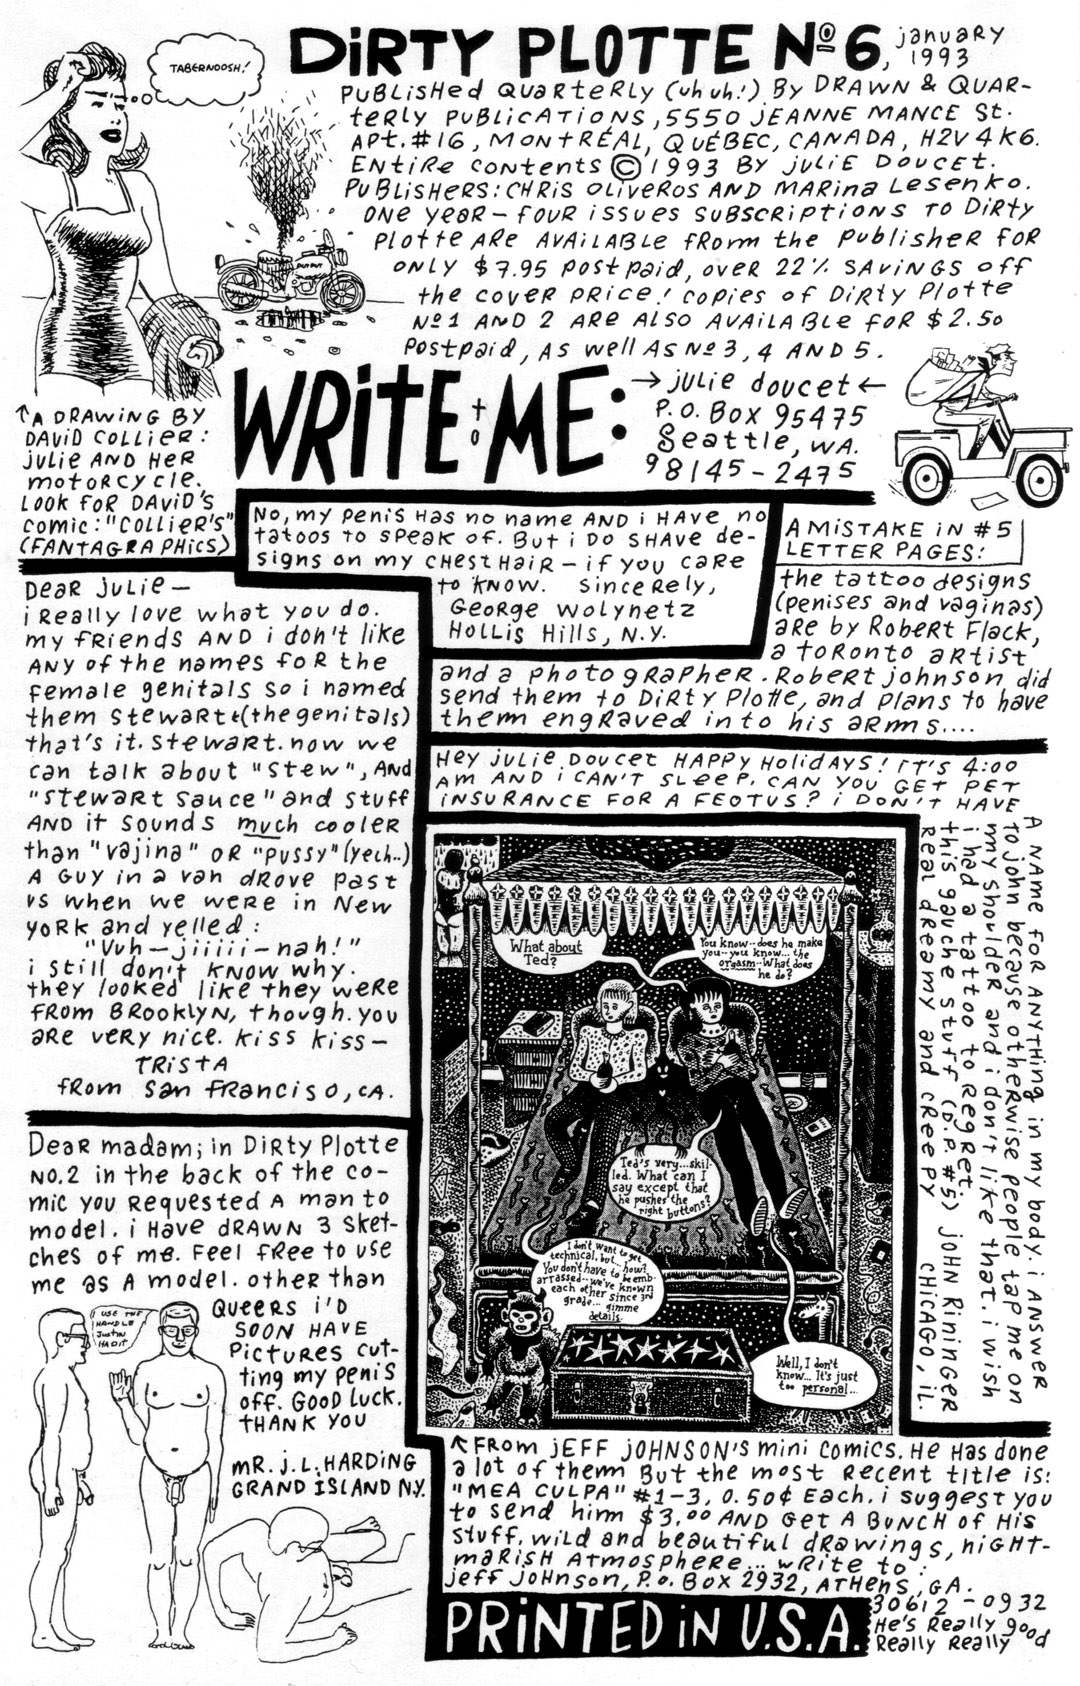 DiRTY PLOTTE Nº 6, january 1993
TABERNOOSH!
PUBLISHED QUARTERLY (uh uh!) BY DRAWN & QUAR-
TERLY PUBLICATIONS, 5550 JEANNE MANCE St.
APt. #16, MONTRÉAL, QUÉBEC, CANADA, H2V 4K6.
ENTiRE CONTENTS © 1993 BY JULIE DOUCET.
PUBLISHERS: CHRIS OLIVEROS AND MARINA LESENKO.
ONE YEAR – FOUR ISSUES SUBSCRIPTIONS TO DIRTY
PLOTTE ARE AVAILABLE FROM the PUBLISHER FOR
ONLY $7.95 POSTPAID, OVER 22% SAVINGS OFF
the COVER PRICE! COPIES OF DIRTY PLOTTE
Nº1 AND 2 ARE ALSO AVAILABLE FOR $2.50
POSTPAID, AS WELL AS Nº 3, 4 AND 5.
PUTPUT
↑A DRAWING BY
DAVID COLLIER:
JULIE AND HER
MOTORCYCLE.
LOOK FOR DAVID'S
COMIC: "COLLIER'S"
(FANTAGRAPHICS)
WRITE to ME:
→ julie doucet ←
P.O. BOX 95475
Seattle, WA.
98145-2475
Dear Julie –
i Really love what you do.
my friends AND i don't like
ANY of the names FOR the
female genitals so i named
them Stewart (the genitals)
that's it. Stewart. now we
can talk about "Stew", AND
"Stewart Sauce" and stuff
AND it sounds much cooler
than "vajina" OR "pussy" (yech..)
A GUY in a van drove past
us when we were in New
York and yelled:
"Vuh–jiiiii–nah!"
i still don't know why.
they looked like they were
from Brooklyn, though. you
are very nice. Kiss kiss –
TRISTA
from San Francisco, CA.
Dear madam; in Dirty Plotte
No.2 in the back of the co-
mic you requested A man to
model. i have drawn 3 sket-
ches of me. Feel free to use
me as A model. other than
QUEERS i'D
SOON HAVE
PICTURES cut-
ting my penis
off. GOOD LUCK.
THANK YOU
MR. J.L. HARDING
GRAND ISLAND N.Y.
I USE THE
HANDLE
JUSTIN
HADIT
No, my penis has no name AND i HAVE no
tatoos to speak of. But i DO SHAVE de-
signs on my CHESTHAIR – if you care
to know. Sincerely,
George Wolynetz
Hollis Hills, N.Y.
A MISTAKE IN #5
LETTER PAGES:
the tattoo designs
(penises and vaginas)
are by Robert Flack,
a Toronto artist
and a photographer. Robert Johnson did
send them to Dirty Plotte, and plans to have
them engraved into his arms....
Hey Julie Doucet HAPPY Holidays! IT'S 4:00
AM AND i CAN'T SLEEP. CAN YOU GET PET
INSURANCE FOR A FEOTUS? i DON'T HAVE
A NAME FOR ANYTHING in my body. I ANSWER
to john because otherwise people tap me on
my shoulder and i don't like that. i wish
i had a tattoo to regret.
this gauche stuff (D.P. #5) JOHN RININGER
real dreamy and creepy CHICAGO, iL.
What about
Ted?
You know-- does he make
you-- you know... the
orgasm-- What does
he do?
Ted's very...skil-
led. What can I
say except that
he pushes the
right buttons?
I don't want to get
technical, but... how?
You don't have to be emb-
arrassed-- we've known
each other since 3rd
grade... gimme
details.
Well, I don't
know... It's just
too personal...
↖ FROM JEFF JOHNSON'S mini comics. He has done
a lot of them But the most recent title is:
"MEA CULPA" #1-3, 0.50¢ EACH. i suggest you
to send him $3.00 AND GET A BUNCH of HIS
stuff. wild and beautiful drawings, night-
marish atmosphere... write to:
Jeff Johnson, P.O. BOX 2932, ATHENS, GA.
30612-0932
He's Really good
Really Really
PRiNTED iN U.S.A.